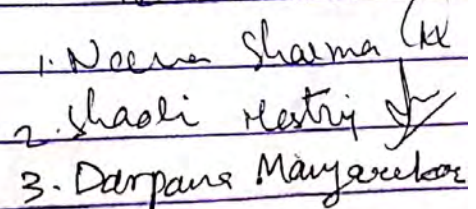 1. Neena Sharma
2. Shaoli Mestry
3. Darpana Manjarekar